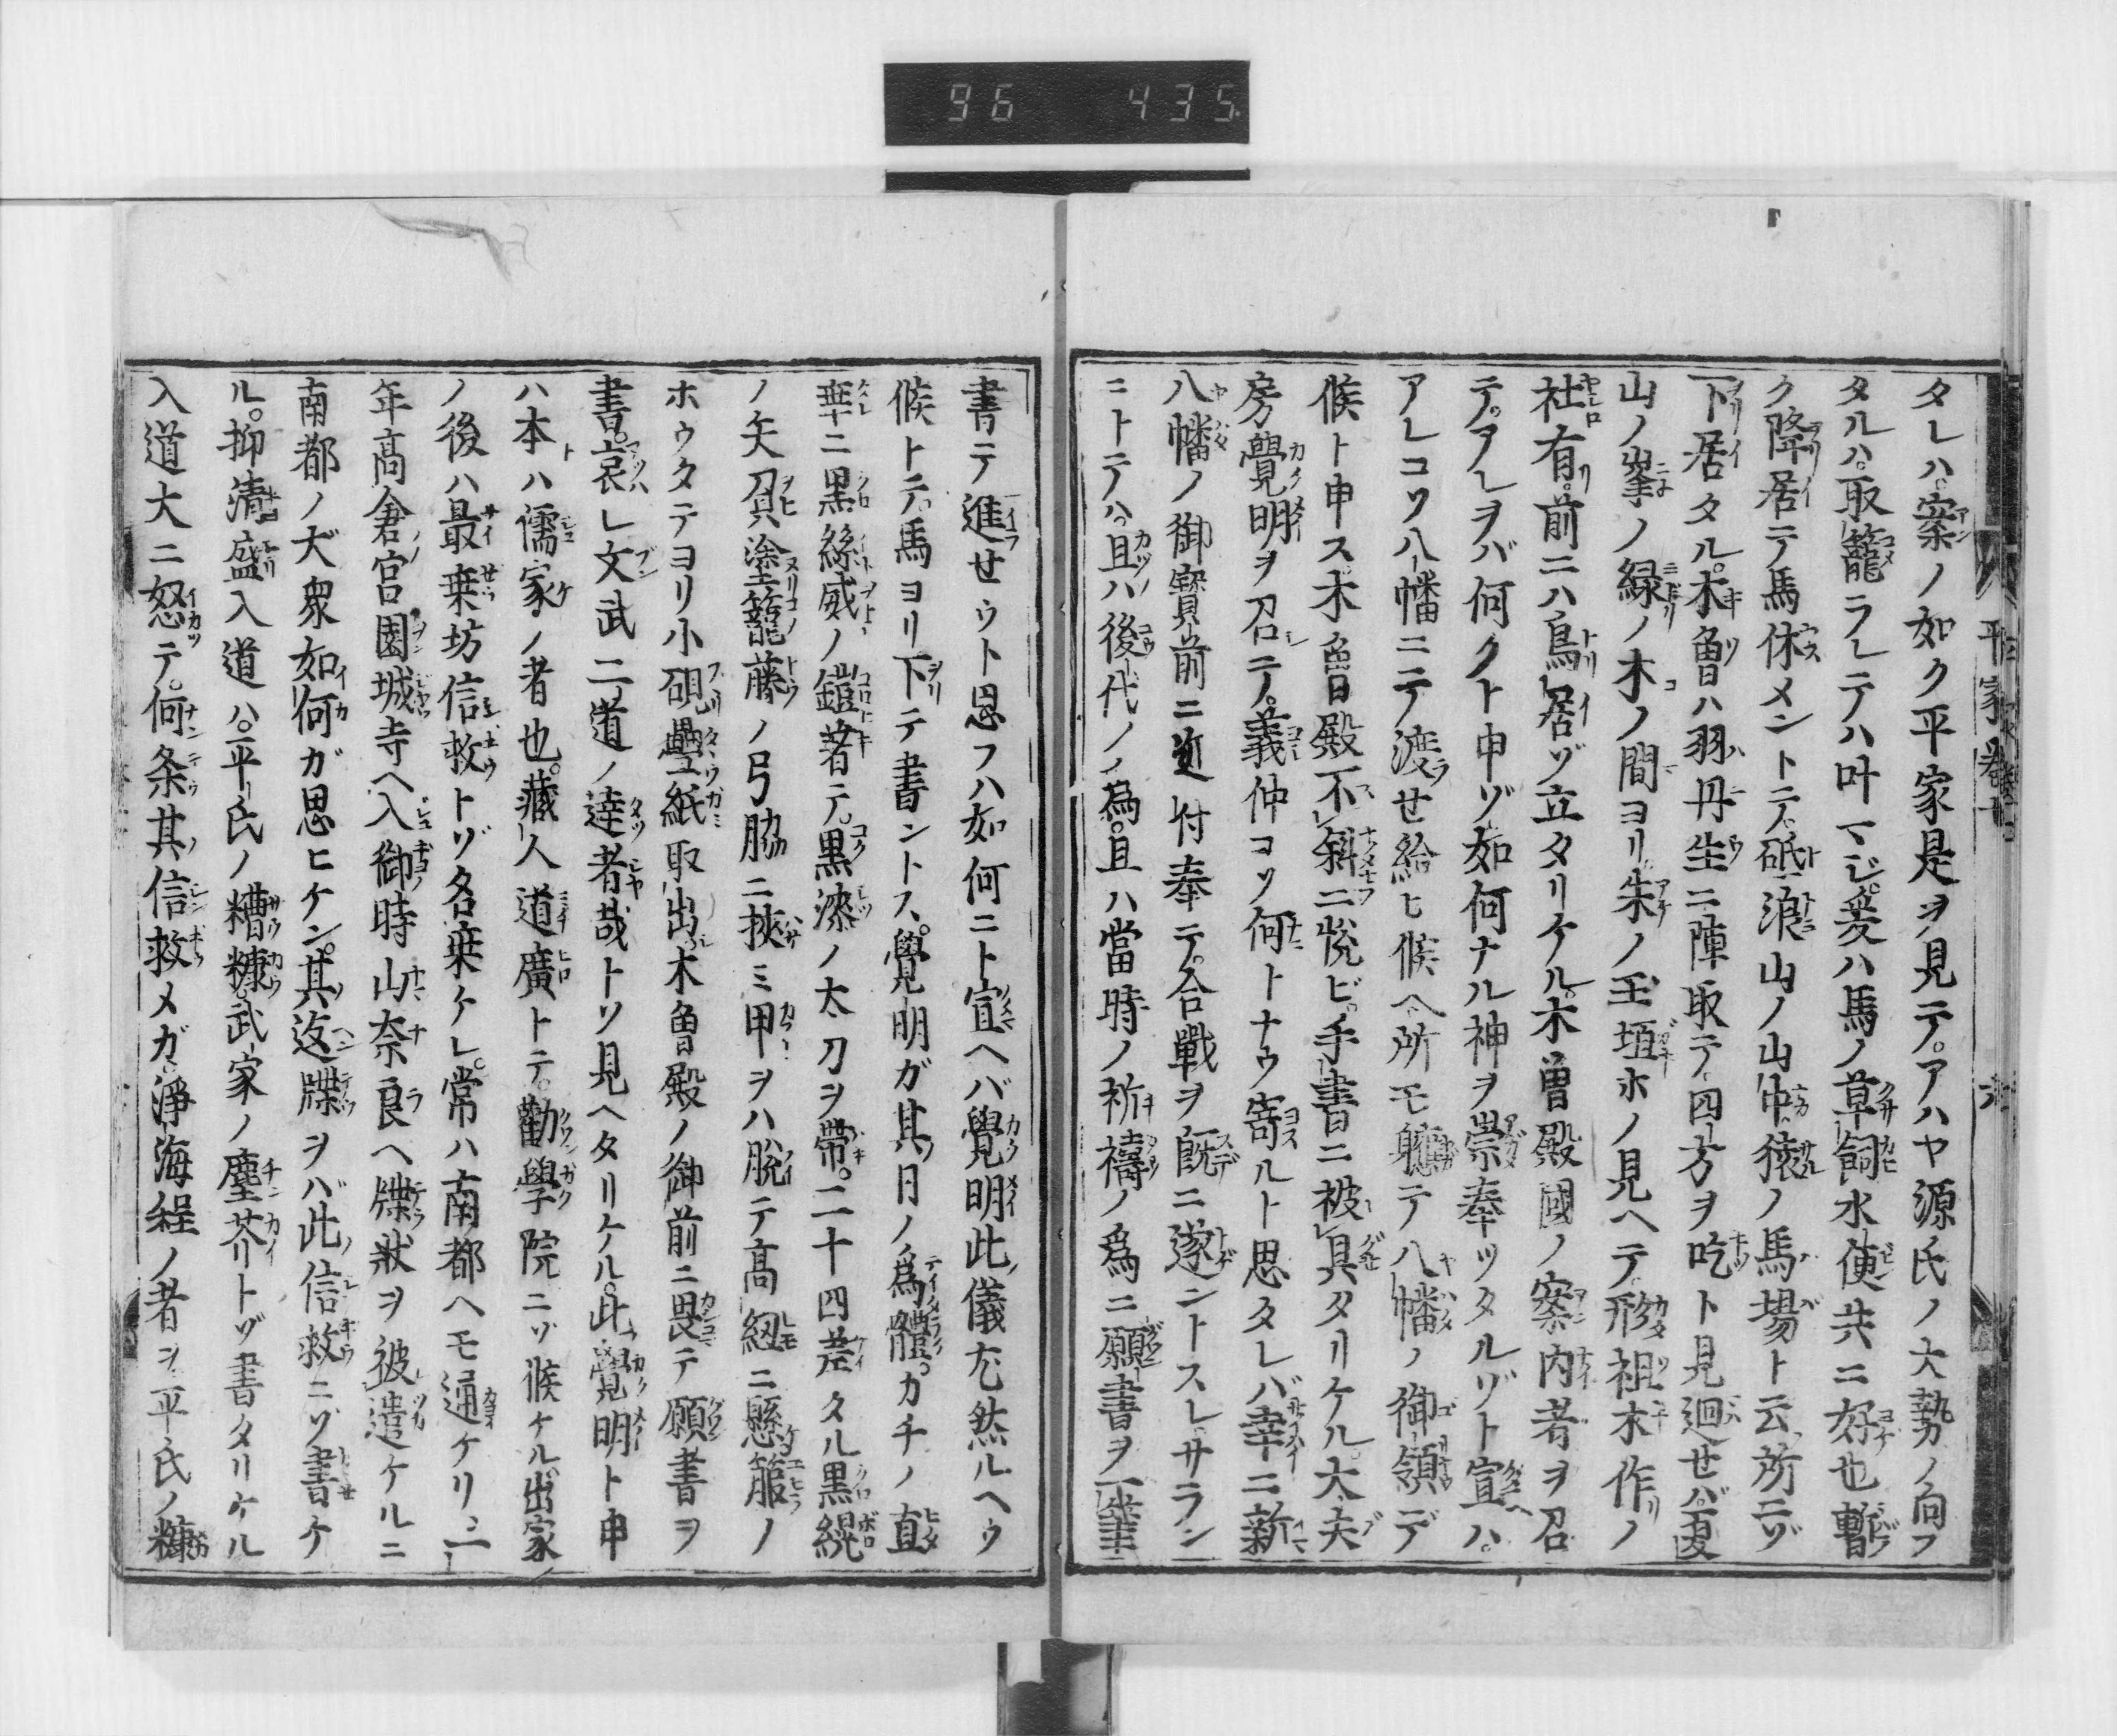 96 435
平家巻第十三
タレハ。案ノ如ク平家是ヲ見テ。アハヤ源氏ノ大勢ノ向フ
タルハ。取籠ラレテハ叶マジ。爰ハ馬ノ草飼水便共ニ好也暫
ク降居テ馬休メントテ。砥浪山ノ山中猿ノ馬場ト云所ニゾ
下居タル。木曽ハ羽丹生ニ陣取テ。四方ヲ吃ト見廻せバ。夏
山ノ峯ノ緑ノ木ノ間ヨリ。朱ノ玉垣ホノ見ヘテ。形祖木作ノ
社有。前ニハ鳥居ゾ立タリケル。木曽殿國ノ案内者ヲ召
テ。アレヲバ何クト申ゾ。如何ナル神ヲ崇奉ツタルゾト宣ハ。
アレコソ八幡ニテ渡せ給ヒ候ヘ。所モ軈テ八幡ノ御領デ
候ト申ス。木曽殿不斜ニ悦ビ。手書ニ被具タリケル。大夫
房覺明ヲ召テ。義仲コソ何トナウ寄ルト思タレバ。幸ニ新
八幡ノ御寶前ニ近付奉テ。合戰ヲ既ニ遂ントスレ。サラン
ニトテハ。且ハ後代ノ爲。且ハ當時ノ祈禱ノ爲ニ願書ヲ一筆
書テ進せウト思フハ如何ニト宣ヘバ覺明此儀尤然ルヘウ
候トテ。馬ヨリ下テ書ントス。覺明ガ其日ノ爲體。カチノ直
垂ニ黒絲威ノ鎧著テ。黒漆ノ太刀ヲ帶。二十四差タル黒繐
ノ矢負塗籠藤ノ弓脇ニ挾ミ甲ヲハ脱テ高紐ニ懸箙ノ
ホウタテヨリ小硯疊紙取出。木曽殿ノ御前ニ畏テ願書ヲ
書。哀レ文武二道ノ達者哉トソ見ヘタリケル。此覺明ト申
ハ本ハ儒家ノ者也。藏人道廣トテ。勸學院ニゾ候ケル。出家
ノ後ハ最乗坊信救トゾ名乗ケレ。常ハ南都ヘモ通ケリ。一
年髙倉宮園城寺ヘ入御時山奈良ヘ牒狀ヲ被遣ケルニ
南都ノ大衆如何ガ思ヒケン。其返牒ヲバ此信救ニゾ書ケ
ル。抑清盛入道ハ。平氏ノ糟糠。武家ノ塵芥トゾ書タリケル
入道大ニ怒テ。何条其信救メガ淨海程ノ者ヲ平氏ノ糠